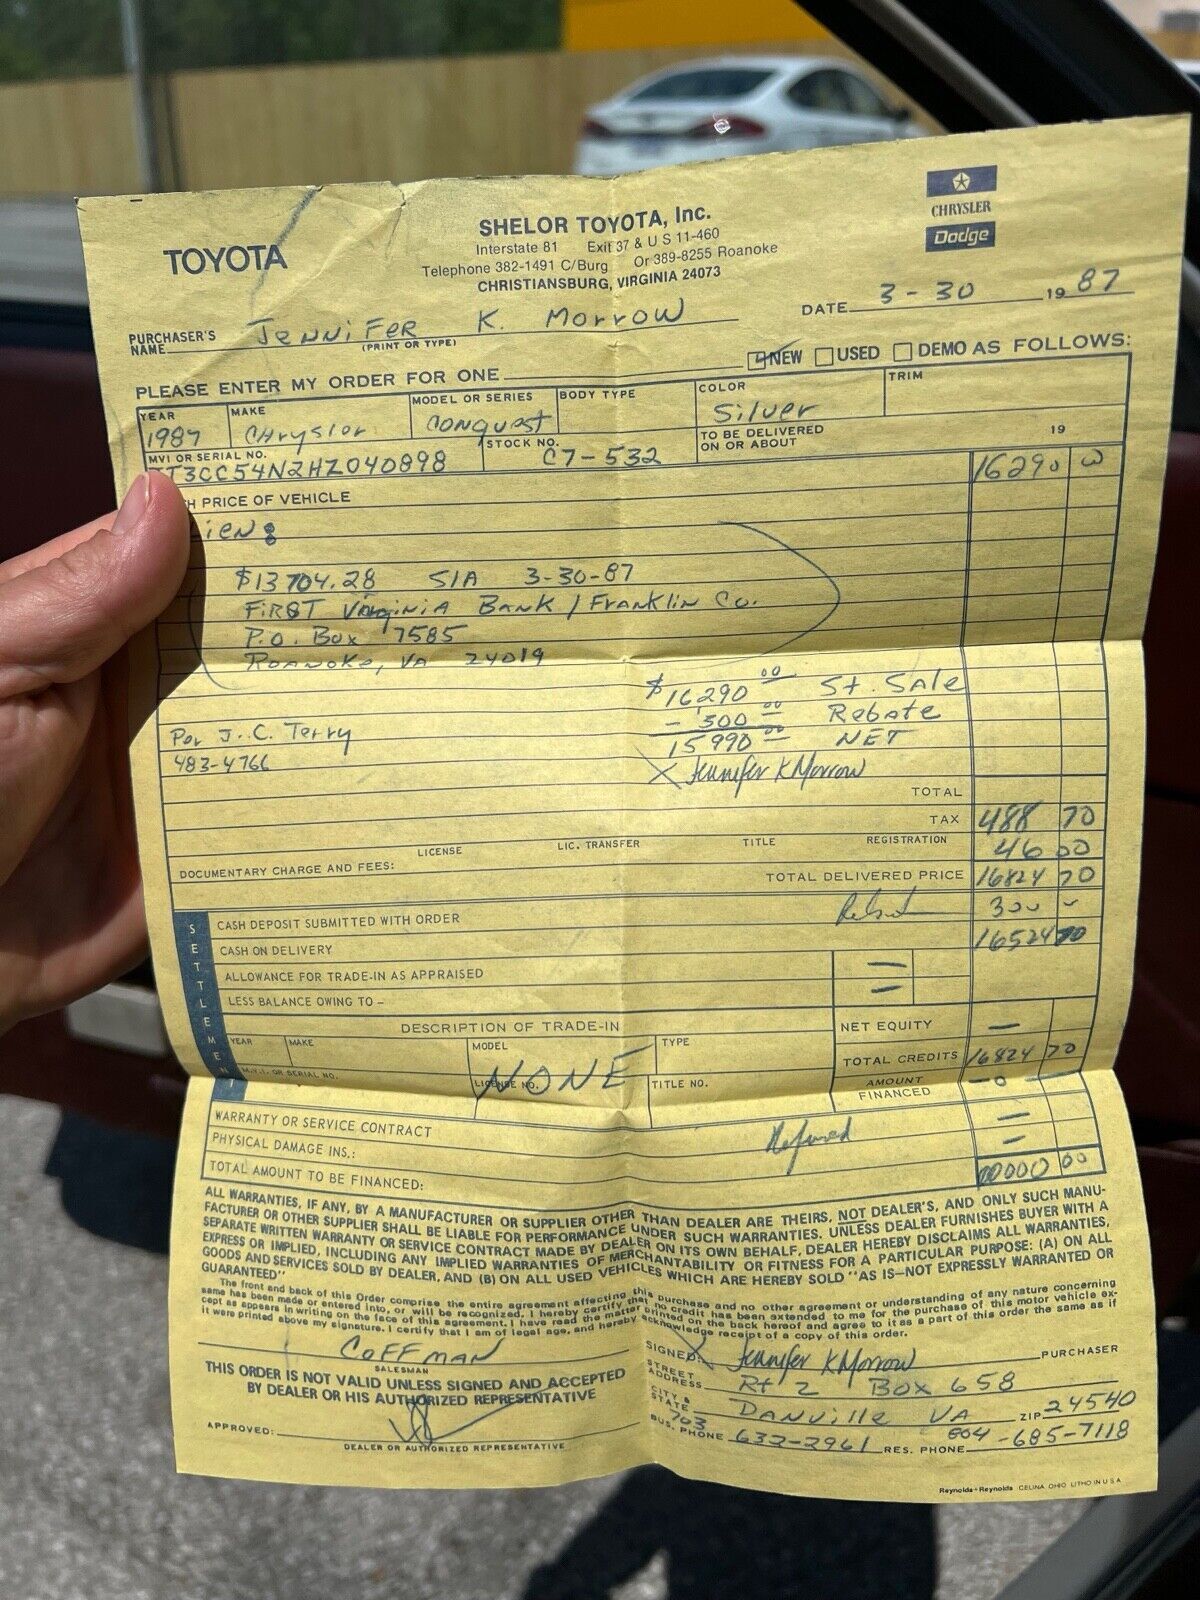 TOYOTA
SHELOR TOYOTA, Inc.
Interstate 81 Exit 37 & U S 11-460
Telephone 382-1491 C/Burg Or 389-8255 Roanoke
CHRISTIANSBURG, VIRGINIA 24073
CHRYSLER
Dodge
DATE 3-30 1987
PURCHASER'S NAME Jennifer K. Morrow
(PRINT OR TYPE)
PLEASE ENTER MY ORDER FOR ONE NEW USED DEMO AS FOLLOWS:
YEAR MAKE MODEL OR SERIES BODY TYPE COLOR TRIM
1987 Chryslor Conquest Silver
MVI OR SERIAL NO. STOCK NO. TO BE DELIVERED ON OR ABOUT 19
JJ3CC54N2HZ040898 C7-532
H PRICE OF VEHICLE 16290 00
ien:
$13704.28 S/A 3-30-87
First Virginia Bank / Franklin Co.
P.O. Box 7585
Roanoke, VA 24019
$16290.00 St. Sale
- 300.00 Rebate
15990.00 NET
Per J. C. Terry
483-4766
X Jennifer K Morrow
TOTAL
TAX 488 70
LICENSE LIC. TRANSFER TITLE REGISTRATION 46 00
DOCUMENTARY CHARGE AND FEES:
TOTAL DELIVERED PRICE 16824 70
SETTLEMENT
CASH DEPOSIT SUBMITTED WITH ORDER Rebate 300 -
CASH ON DELIVERY 16524 70
ALLOWANCE FOR TRADE-IN AS APPRAISED —
LESS BALANCE OWING TO – —
DESCRIPTION OF TRADE-IN NET EQUITY —
YEAR MAKE MODEL TYPE TOTAL CREDITS 16824 70
NONE
M.V.I. OR SERIAL NO. LICENSE NO. TITLE NO. AMOUNT FINANCED -0-
WARRANTY OR SERVICE CONTRACT —
PHYSICAL DAMAGE INS.: Refused —
TOTAL AMOUNT TO BE FINANCED: 00000 00
ALL WARRANTIES, IF ANY, BY A MANUFACTURER OR SUPPLIER OTHER THAN DEALER ARE THEIRS, NOT DEALER'S, AND ONLY SUCH MANU-
FACTURER OR OTHER SUPPLIER SHALL BE LIABLE FOR PERFORMANCE UNDER SUCH WARRANTIES, UNLESS DEALER FURNISHES BUYER WITH A
SEPARATE WRITTEN WARRANTY OR SERVICE CONTRACT MADE BY DEALER ON ITS OWN BEHALF, DEALER HEREBY DISCLAIMS ALL WARRANTIES,
EXPRESS OR IMPLIED, INCLUDING ANY IMPLIED WARRANTIES OF MERCHANTABILITY OR FITNESS FOR A PARTICULAR PURPOSE: (A) ON ALL
GOODS AND SERVICES SOLD BY DEALER, AND (B) ON ALL USED VEHICLES WHICH ARE HEREBY SOLD "AS IS—NOT EXPRESSLY WARRANTED OR
GUARANTEED"
The front and back of this Order comprise the entire agreement affecting this purchase and no other agreement or understanding of any nature concerning
same has been made or entered into, or will be recognized. I hereby certify that no credit has been extended to me for the purchase of this motor vehicle ex-
cept as appears in writing on the face of this agreement. I have read the matter printed on the back hereof and agree to it as a part of this order the same as if
it were printed above my signature. I certify that I am of legal age, and hereby acknowledge receipt of a copy of this order.
Coffman
SALESMAN
THIS ORDER IS NOT VALID UNLESS SIGNED AND ACCEPTED
BY DEALER OR HIS AUTHORIZED REPRESENTATIVE
APPROVED:
DEALER OR AUTHORIZED REPRESENTATIVE
SIGNED X Jennifer K Morrow PURCHASER
STREET ADDRESS Rt 2 Box 658
CITY & STATE Danville VA ZIP 24540
BUS. PHONE 703 632-2961 RES. PHONE 804-685-7118
Reynolds+Reynolds CELINA OHIO LITHO IN U S A